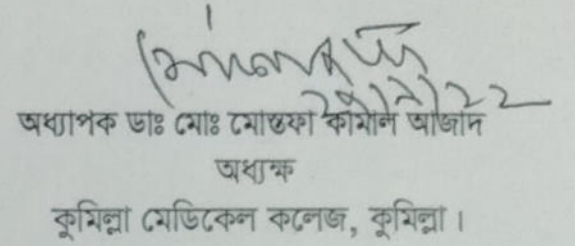 অধ্যাপক ডাঃ মোঃ মোস্তফা কামাল আজাদ
অধ্যক্ষ
কুমিল্লা মেডিকেল কলেজ, কুমিল্লা ।